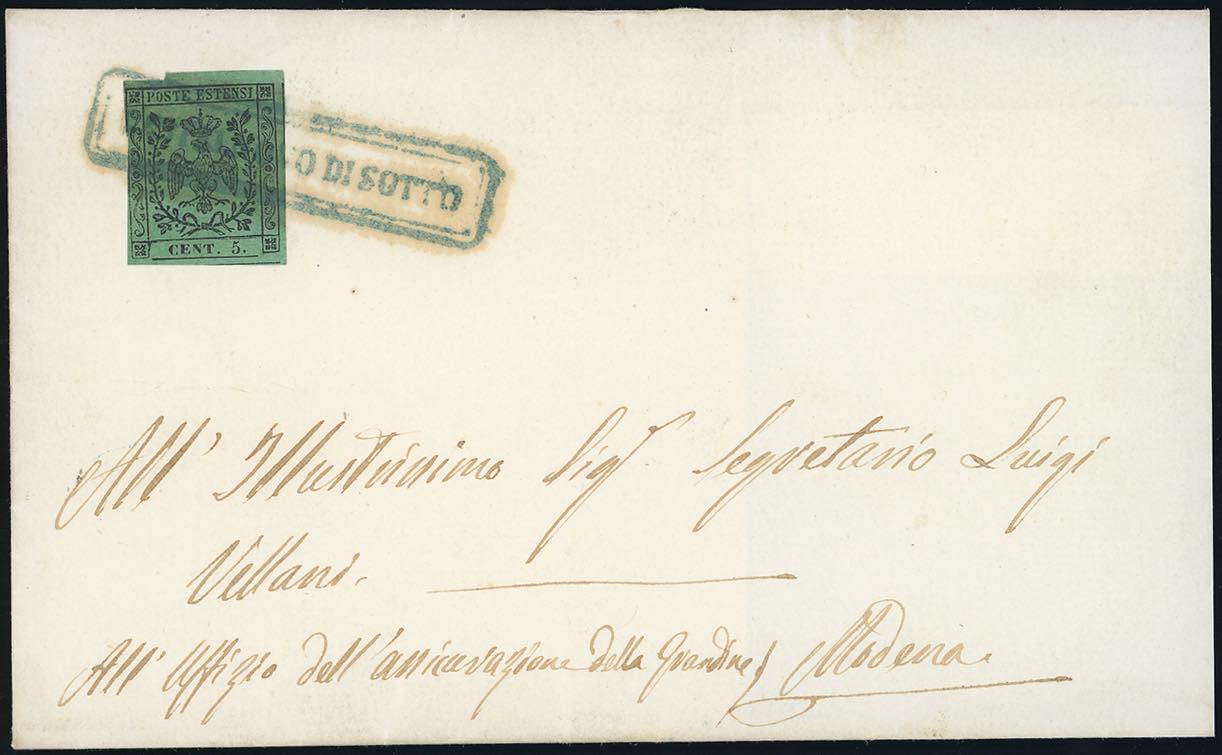 POSTE ESTENSI
CENT. 5.
O DI SOTTO
All' Illustrissimo Sigr Segretario Luigi
Vellani.
All' Uffizio dell'assicurazione della Grandine / Modena.